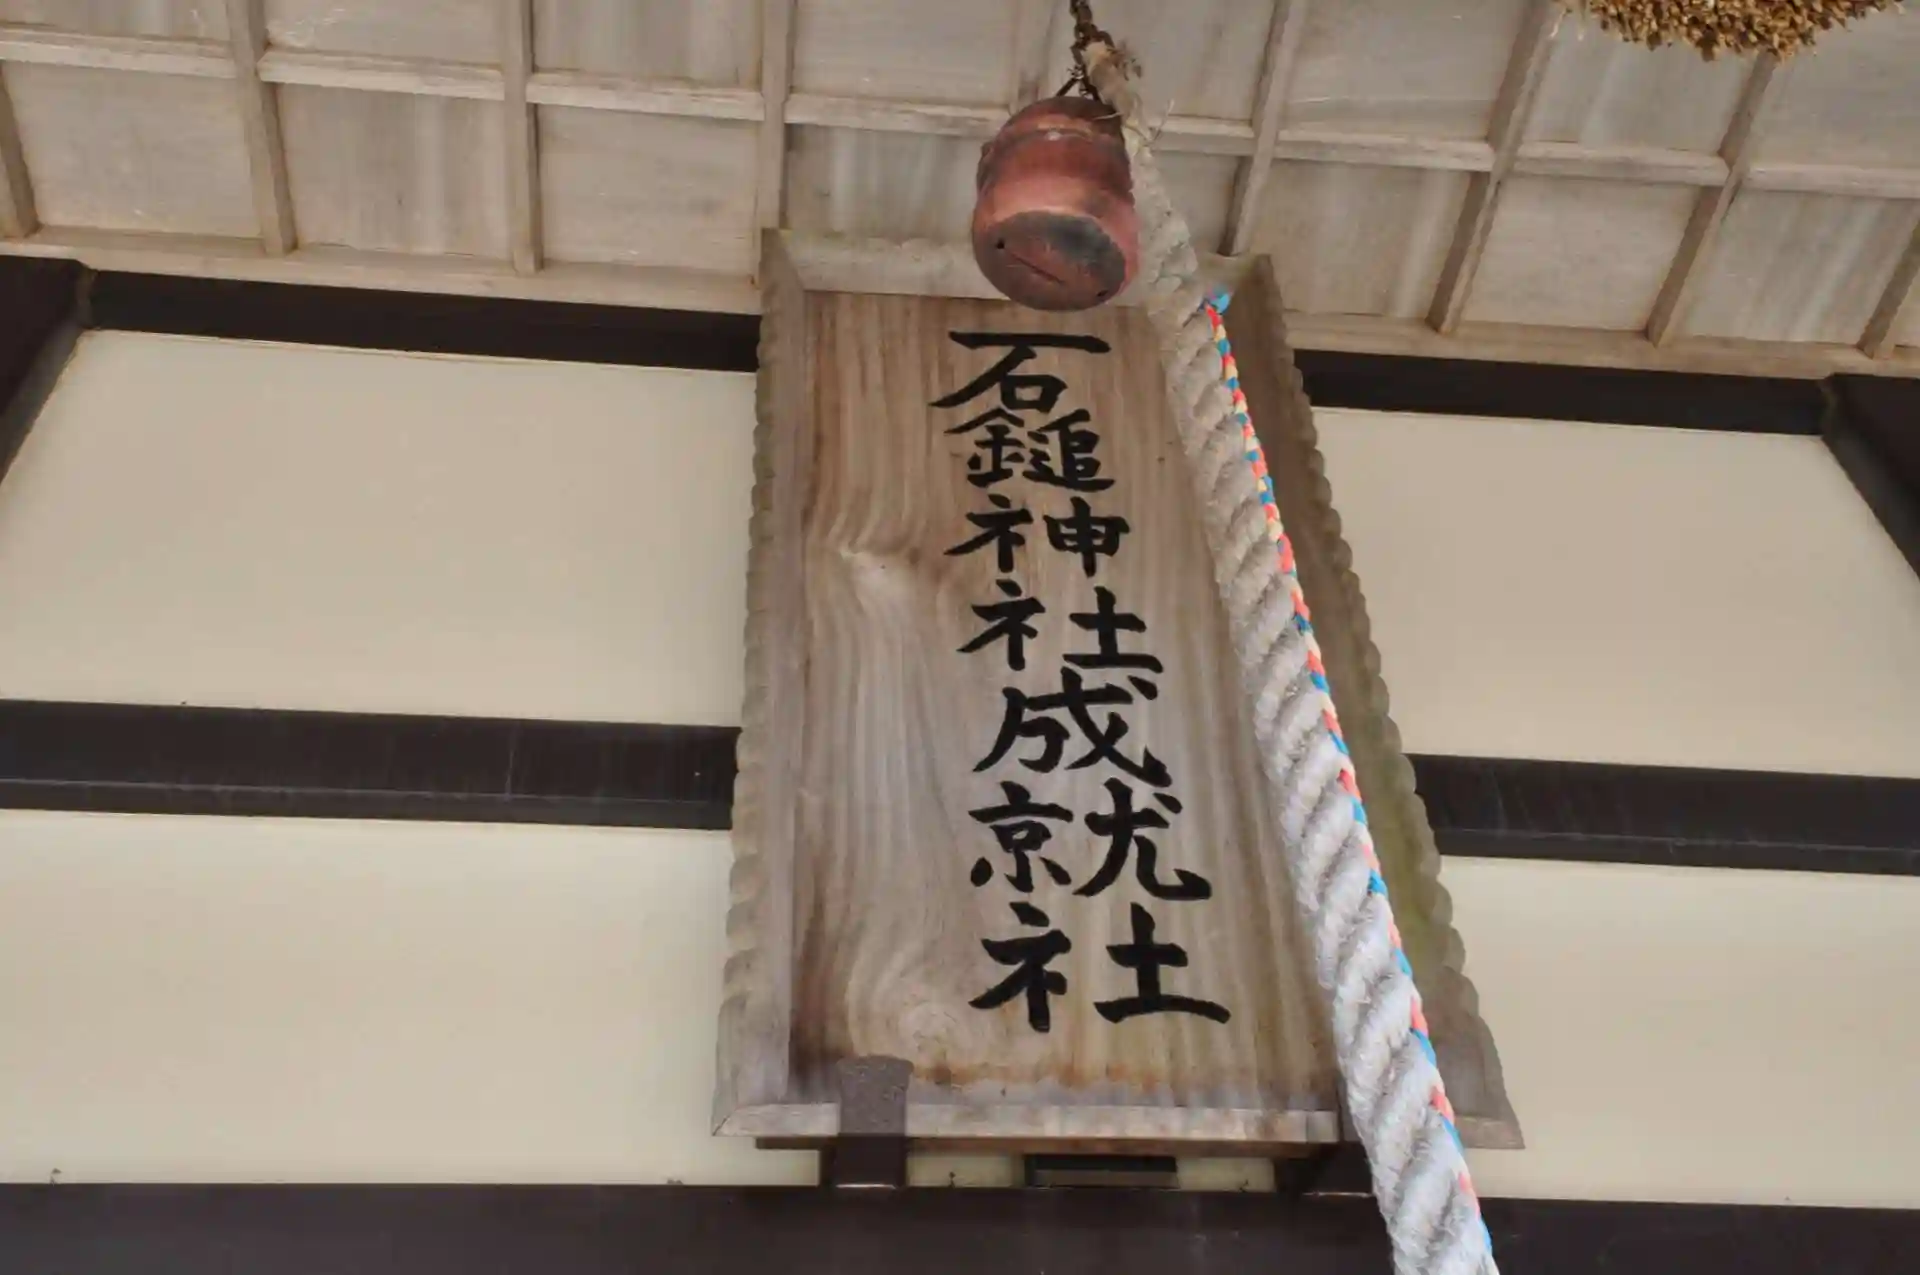 石鎚神社成就社